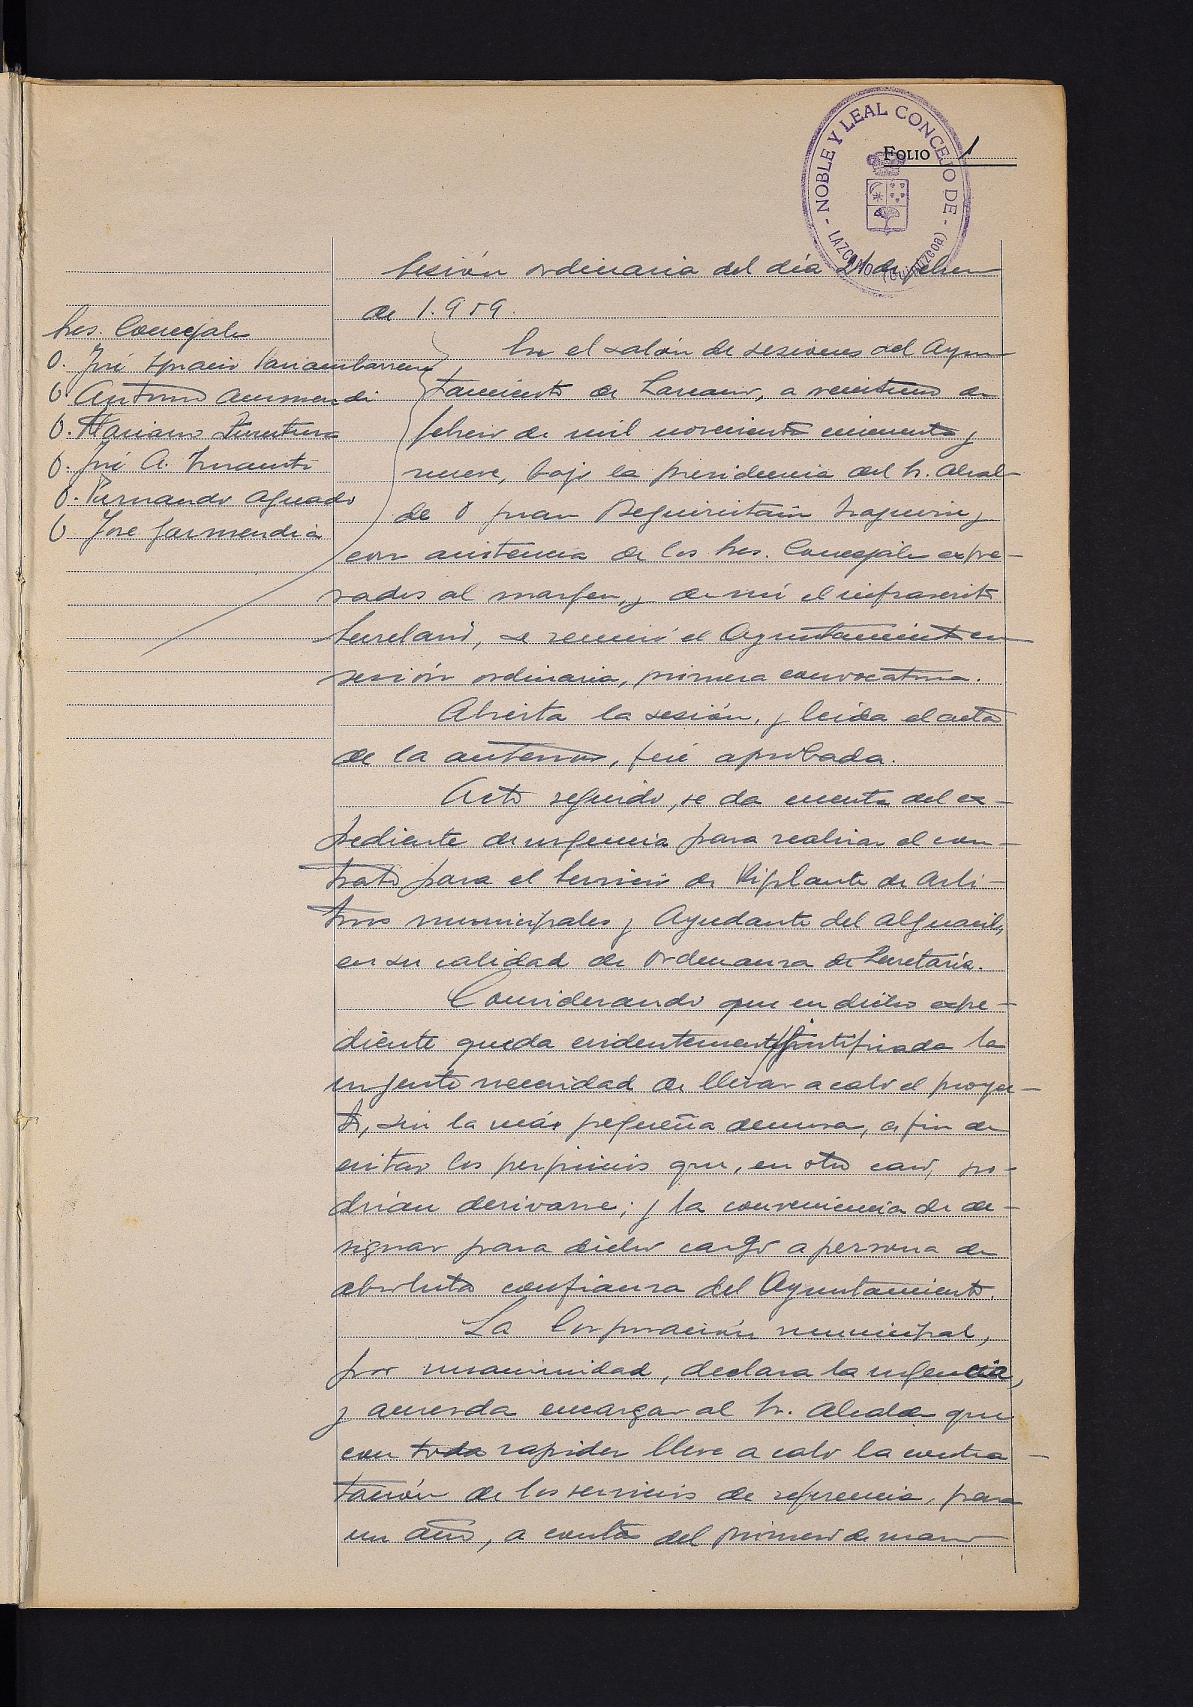 NOBLE Y LEAL CONCEJO DE
LAZCANO (Guipúzcoa)
FOLIO 1
Sesión ordinaria del día 21 de febrero
de 1.959.
Sres. Concejales
D. José Ignacio
D. Antonio Aurmendi
D. Mariano
D. José A.
D. Fernando Aguado
D. José Garmendia
En el salón de sesiones del Ayun-
tamiento de Lazcano, a veintiuno de
febrero de mil novecientos cincuenta y
nueve, bajo la presidencia del Sr. Alcal-
de D Juan Beguiristain y
con asistencia de los Sres. Concejales expre-
sados al margen, y de mí el infrascrito
Secretario, se reunió el Ayuntamiento en
sesión ordinaria, primera convocatoria.
Abierta la sesión, y leída el acta
de la anterior, fué aprobada.
Acto seguido, se da cuenta del ex-
pediente de urgencia para realizar el con-
trato para el servicio de Vigilante de Arbi-
trios municipales y Ayudante del alguacil,
en su calidad de Ordenanza de Secretaría.
Considerando que en dicho expe-
diente queda evidentemente justificada la
urgente necesidad de llevar a cabo el proyec-
to, sin la más pequeña demora, a fin de
evitar los perjuicios que, en otro caso, po-
drían derivarse; y la conveniencia de de-
signar para dicho cargo a persona de
absoluta confianza del Ayuntamiento.
La Corporación municipal,
por unanimidad, declara la urgencia,
y acuerda encargar al Sr. Alcalde que
con toda rapidez lleve a cabo la contra-
tación de los servicios de referencia, para
un año, a contar del primero de marzo